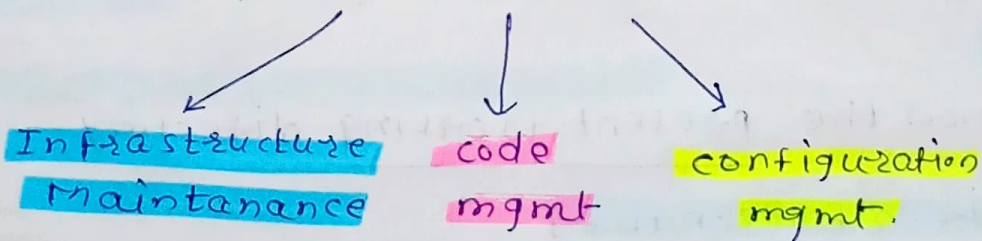 Infrastructure
Maintanance
code
mgmt
configuration
mgmt.